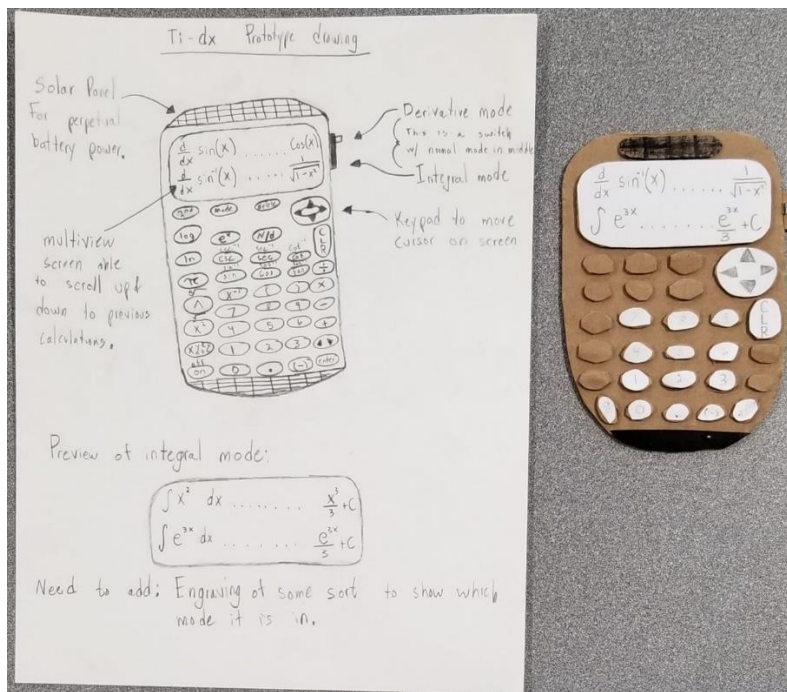 Ti-dx Prototype drawing
Solar Panel
For perpetual
battery power.
Derivative mode
This is a switch
w/ normal mode in middle
Integral mode
Keypad to move
cursor on screen
multiview
screen able
to scroll up &
down to previous
calculations.
d/dx sin(x) ...... cos(x)
d/dx sin⁻¹(x) ...... 1/√(1-x²)
2nd mode
log eˣ N/d CLR
ln csc sec cot
π sin cos ÷
^ x⁻¹ ( ) ×
7 8 9 −
x² 4 5 6 +
1 2 3 ◂ ▸
off
on 0 . (-) enter
Preview of integral mode:
∫x² dx ....... x³/3 +C
∫e³ˣ dx ....... e³ˣ/3 +C
Need to add: Engraving of some sort to show which
mode it is in.
d/dx sin⁻¹(x) ...... 1/√(1-x²)
∫ e³ˣ ....... e³ˣ/3 +C
CLR
7 8 9
4 6
1 2 3
0 . (-)